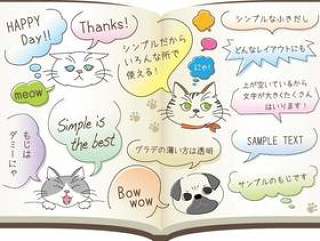 HAPPY
Day!!
Thanks!
シンプルだから
いろんな所で
使える!
meow
にゃ!
もじは
ダミーにゃ
Simple is
the best
グラデの薄い方は透明
Bow
wow
シンプルなふきだし
どんなレイアウトにも
上が空いているから
文字が大きくたくさん
はいります!
SAMPLE TEXT
サンプルのもじです